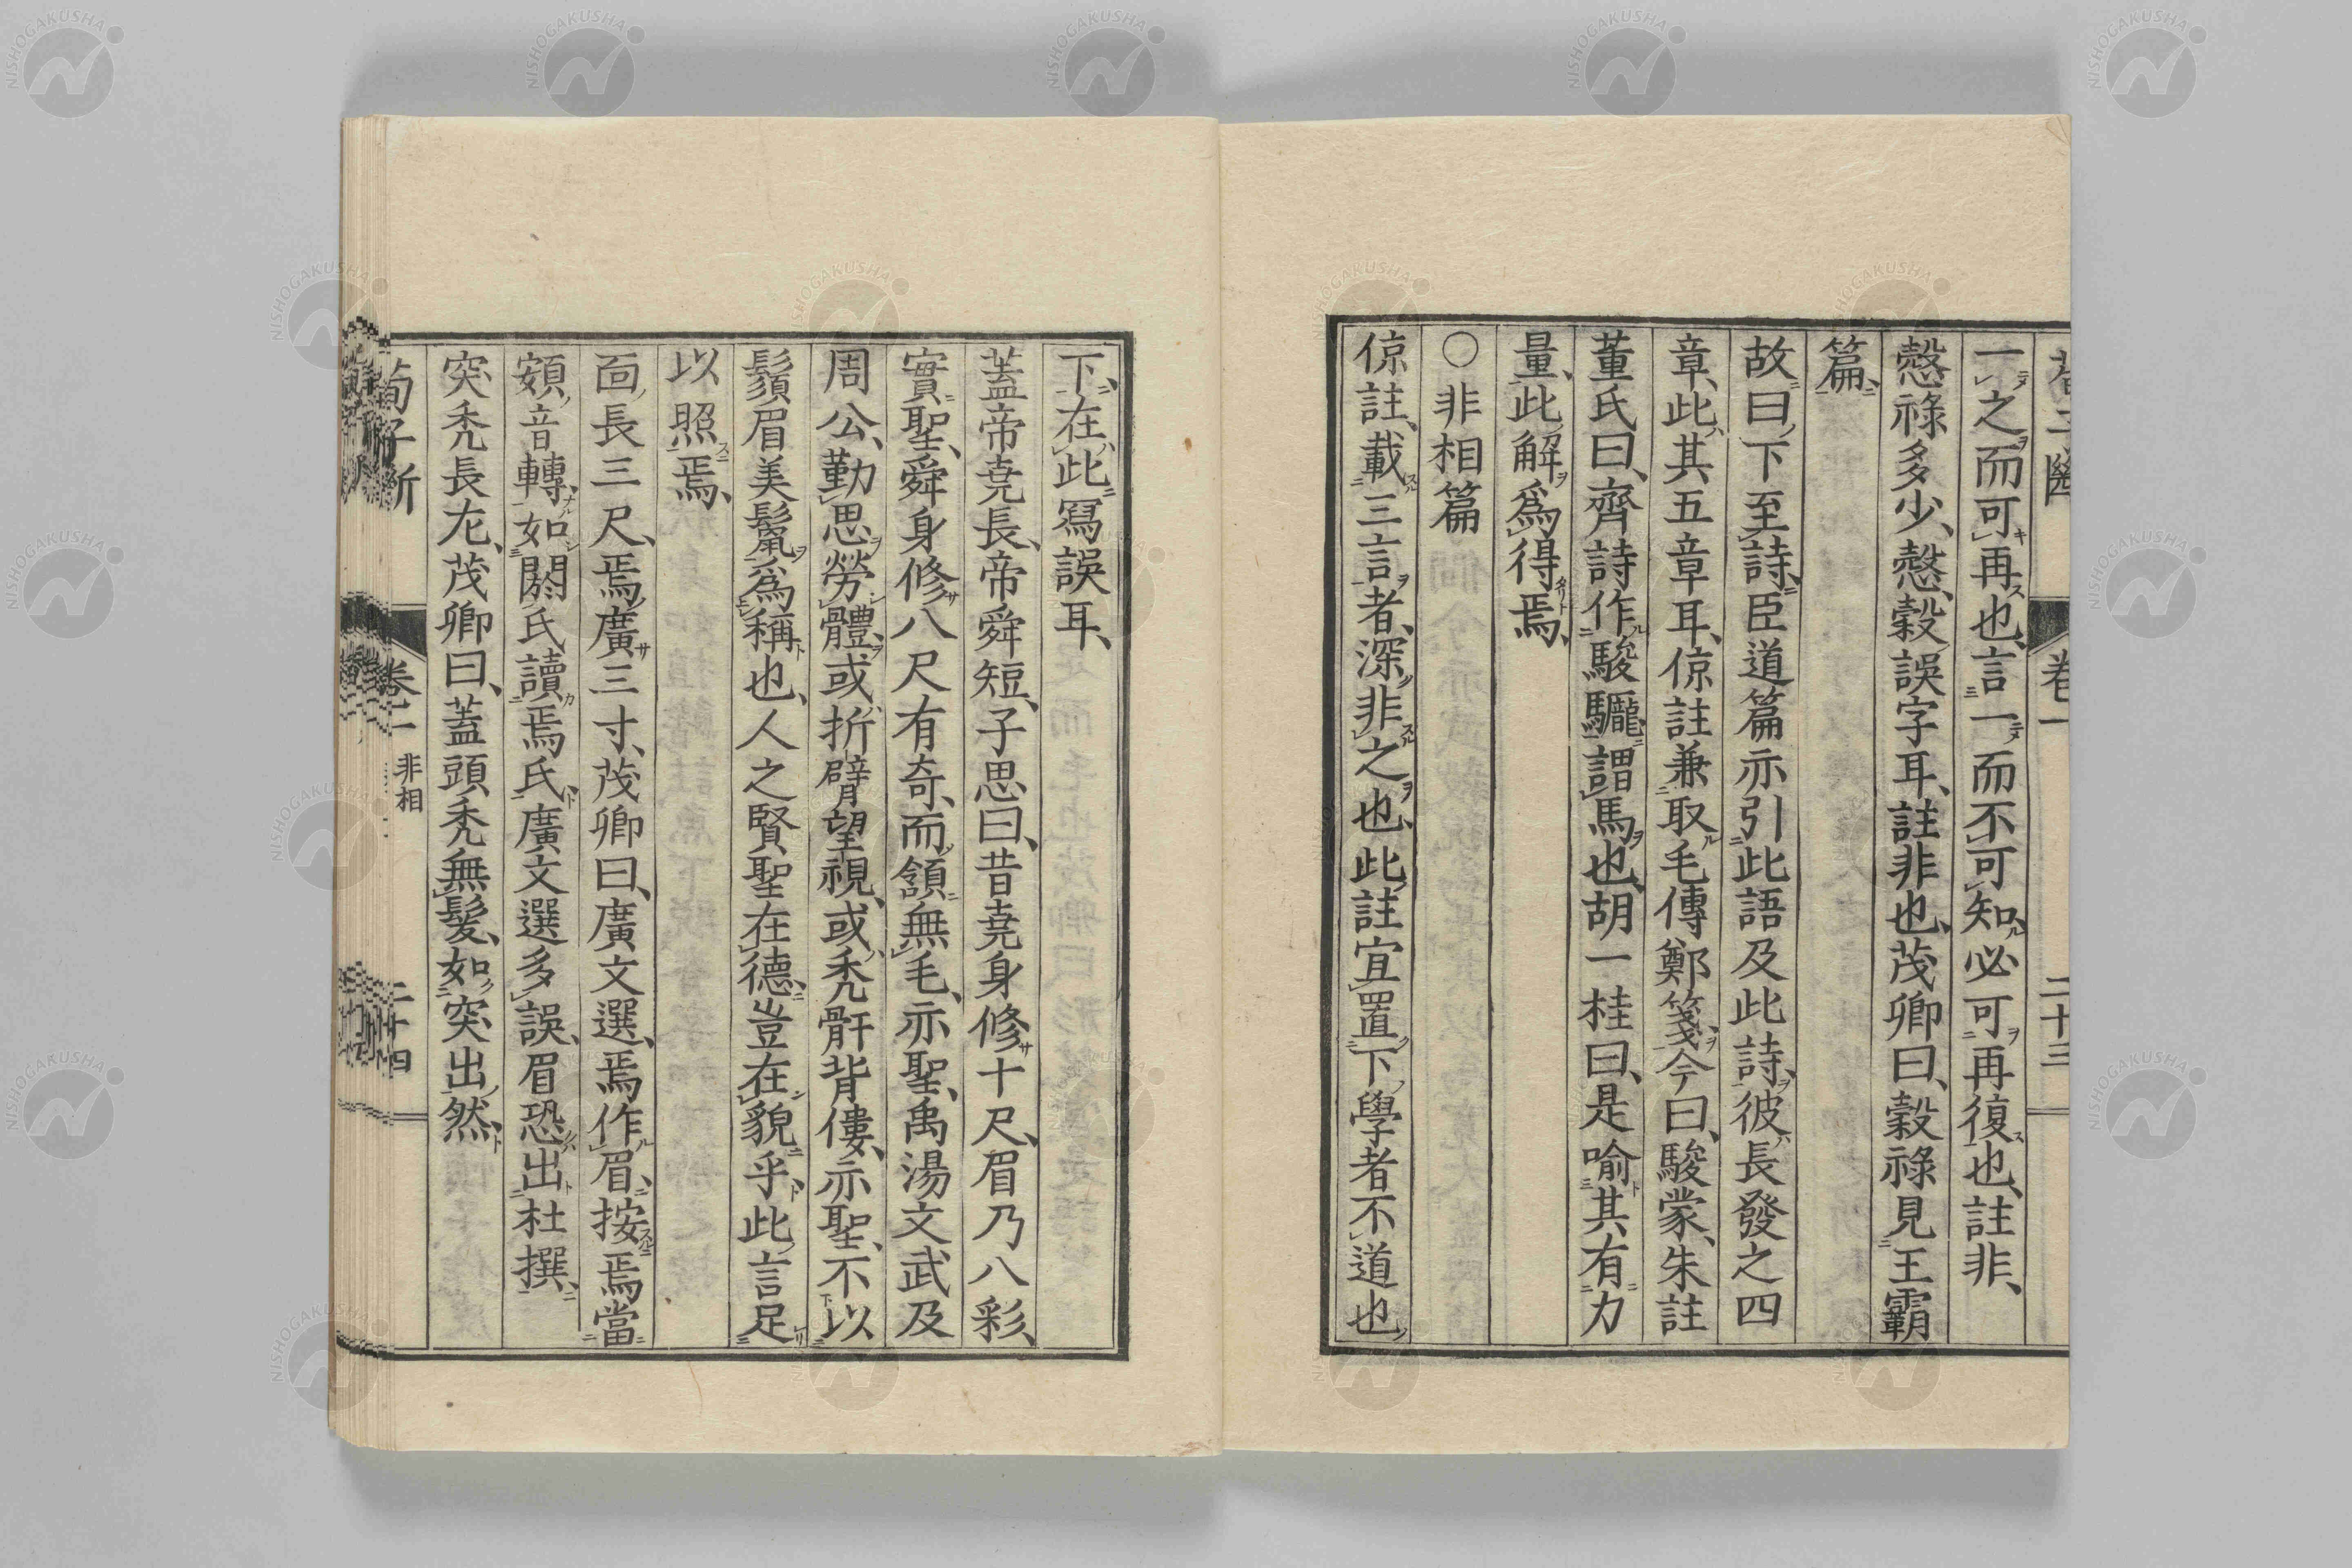 一之而可再也、言一而不可知、必可再復也、註非、
愨祿多少、愨、穀誤字耳、註非也、茂卿曰、穀祿見王霸
篇、
故曰、下至詩、臣道篇亦引此語及此詩、彼長發之四
章、此其五章耳、倞註兼取毛傳鄭箋、今曰、駿蒙、朱註
董氏曰、齊詩作駿驪、謂馬也、胡一桂曰、是喻其有力
量、此解爲得焉、
○非相篇
倞註、載三言者、深非之也、此註宜置下、學者不道也
卷一
二十三
下、在此寫誤耳、
蓋帝堯長、帝舜短、子思曰、昔堯身修十尺、眉乃八彩、
實聖、舜身修八尺有奇、而頷無毛、亦聖、禹湯文武及
周公、勤思勞體、或折臂望視、或禿骭背僂、亦聖、不以
鬚眉美鬣爲稱也、人之賢聖在德、豈在貌乎、此言足
以照焉、
面長三尺、焉廣三寸、茂卿曰、廣文選、焉作眉、按焉當
頞、音轉、如閼氏讀焉氏、廣文選多誤、眉恐出杜撰、
突禿長左、茂卿曰、蓋頭禿無髮、如突出然、
荀子斷
卷二
非相
二十四
NISHOGAKUSHA